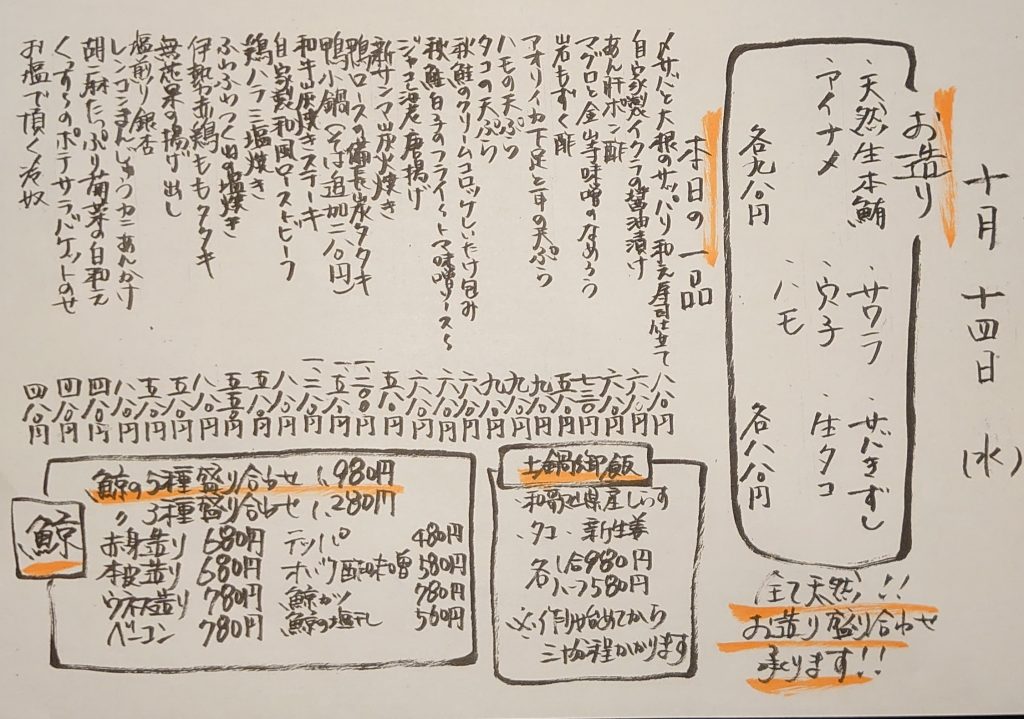 十月十四日(水)
お造り
・天然生本鮪 ・サワラ ・サバきずし
・アイナメ ・穴子 ・生タコ
・ハモ
各九八〇円 各八八〇円
全て天然!!
お造り盛り合わせ
承ります!!
本日の一品
〆サバと大根のサッパリ和え寿司仕立て 八八〇円
自家製イクラの醤油漬け 六八〇円
あん肝ポン酢 六八〇円
マグロと金山寺味噌のなめろう 七三〇円
岩もずく酢 五八〇円
アオリイカ下足と耳の天ぷら 九八〇円
ハモの天ぷら 九八〇円
タコの天ぷら 九八〇円
秋鮭のクリームコロッケしいたけ包み 六八〇円
秋鮭白子のフライ〜トマ味噌ソース〜 六八〇円
ジャコ 唐揚げ 五八〇円
新サンマ炭火焼き
鴨ロースの備長炭タタキ 一、二〇〇円
鴨小鍋(そば追加二八〇円) 一、五八〇円
和牛炭焼きステーキ 一、二八〇円
自家製和風ローストビーフ 八八〇円
鶏ハラミ塩焼き 五八〇円
ふわふわつくねの塩焼き 五五〇円
伊勢赤鶏ももタタキ 八八〇円
無花果の揚げ出し 五八〇円
塩煎り銀杏 五八〇円
レンコンまんじゅうカニあんかけ 八八〇円
胡麻たっぷり菊菜の白和え 四八〇円
くんせいのポテサラバゲットのせ 四八〇円
お塩で頂く冷奴 四八〇円
土鍋御飯
・和歌山県産しらす
・タコ ・新生姜
各 1合980円
ハーフ580円
※作り始めてから
三十分程かかります
鯨
鯨の5種盛り合わせ 1,980円
〃 3種盛り合わせ 1,280円
赤身造り 680円 テッパ 480円
本皮造り 680円 オバケ酢味噌 580円
ウネス造り 780円 鯨カツ 780円
ベーコン 780円 鯨の塩干し 560円